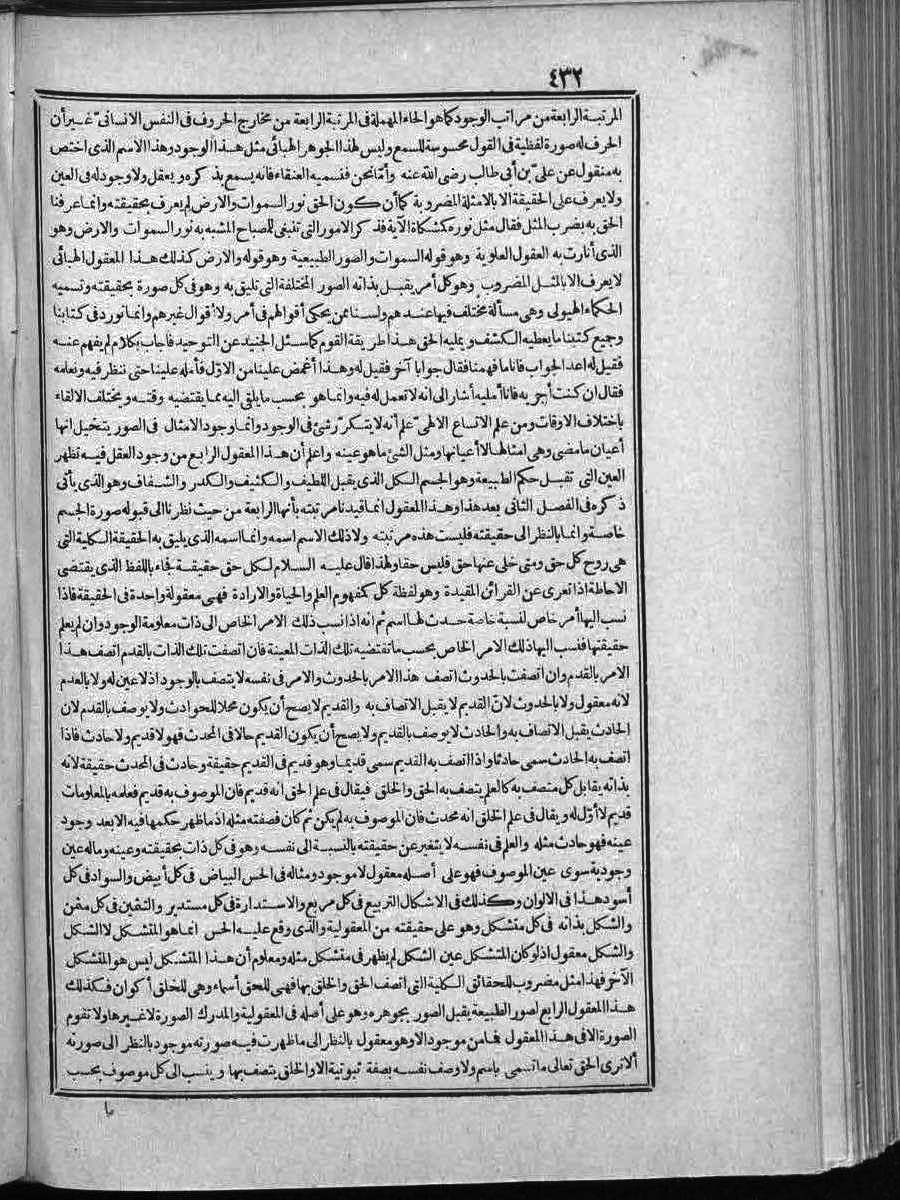 ٤٣٢
المرتبة الرابعة من مراتب الوجود كما هو الحاء المهملة فى المرتبة الرابعة من مخارج الحروف فى النفس الانسانىّ غير أن
الحرف له صورة لفظية فى القول محسوسة للسمع وليس لهذا الجوهر الهبائى مثل هذا الوجود وهذا الاسم الذى اختص
به منقول عن علىّ بن أبى طالب رضى الله عنه وأمّا نحن فنسميه العنقاء فانه يسمع بذكره ويعقل ولا وجود له فى العين
ولا يعرف على الحقيقة الا بالامثلة المضروبة كما أن كون الحق نور السموات والارض لم يعرف بحقيقته وانما عرفنا
الحق به بضرب المثل فقال مثل نوره كمشكاة الآية فذكر الامور التى تنبغى للمصباح المشبه به نور السموات والارض وهو
الذى أنارت به العقول العلوية وهو قوله السموات والصور الطبيعية وهو قوله والارض كذلك هذا المعقول الهبائى
لا يعرف الا بالمثل المضروب وهو كل أمر يقبل بذاته الصور المختلفة التى تليق به وهو فى كل صورة بحقيقته وتسميه
الحكماء الهيولى وهى مسألة مختلف فيها عندهم ولسنا ممن يحكى أقوالهم فى أمر ولا أقوال غيرهم وانما نورد فى كتابنا
وجميع كتبنا ما يعطيه الكشف ويمليه الحق هذا طريقة القوم كما سئل الجنيد عن التوحيد فاجاب بكلام لم يفهم عنه
فقيل له اعد الجواب فانا ما فهمنا فقال جوابا آخر فقيل له وهذا أغمض علينا من الاوّل فأمله علينا حتى ننظر فيه ونعلمه
فقال ان كنت أجريه فانا أمليه أشار الى انه لا تعمل له فيه وانما هو بحسب ما يلقى اليه مما يقتضيه وقته ويختلف الالقاء
باختلاف الاوقات ومن علم الاتساع الالهىّ علم أنه لا يتكرّر شئ فى الوجود وانما وجود الامثال فى الصور يتخيل انها
أعيان ما مضى وهى امثالها لا أعيانها ومثل الشئ ما هو عينه واعلم أن هذا المعقول الرابع من وجود العقل فيه تظهر
العين التى تقبل حكم الطبيعة وهو الجسم الكل الذى يقبل اللطيف والكثيف والكدر والشفاف وهو الذى يأتى
ذكره فى الفصل الثانى بعد هذا وهذا المعقول انما قيدنا مرتبته بأنها الرابعة من حيث نظرنا الى قبوله صورة الجسم
خاصة وانما بالنظر الى حقيقته فليست هذه مرتبته ولا ذلك الاسم اسمه وانما اسمه الذى يليق به الحقيقة الكلية التى
هى روح كل حق ومتى خلى عنها حق فليس حقا ولهذا قال عليه السلام لكل حق حقيقة فجاء باللفظ الذى يقتضى
الاحاطة اذا تعرى عن القرائن المقيدة وهو لفظة كل كمفهوم العلم والحياة والارادة فهى معقولة واحدة فى الحقيقة فاذا
نسب اليها أمر خاص لنسبة خاصة حدث لها اسم ثم انه اذا نسب ذلك الامر الخاص الى ذات معلومة الوجود وان لم يعلم
حقيقتها فنسب اليها ذلك الامر الخاص بحسب ما تقتضيه تلك الذات المعينة فان اتصفت تلك الذات بالقدم اتصف هذا
الامر بالقدم وان اتصفت بالحدوث اتصف هذا الامر بالحدوث والامر فى نفسه لا يتصف بالوجود اذ لا عين له ولا بالعدم
لانه معقول ولا بالحدوث لانّ القديم لا يقبل الاتصاف به والقديم لا يصح أن يكون محلا للحوادث ولا يوصف بالقدم لان
الحادث يقبل الاتصاف به والحادث لا يوصف بالقديم ولا يصح أن يكون القديم حالا فى المحدث فهو لا قديم ولا حادث فاذا
اتصف به الحادث سمى حادثا واذا اتصف به القديم سمى قديما وهو قديم فى القديم حقيقة وحادث فى المحدث حقيقة لانه
بذاته يقابل كل متصف به كالعلم يتصف به الحق والخلق فيقال فى علم الحق انه قديم فان الموصوف به قديم فعلمه بالمعلومات
قديم لا أوّل له ويقال فى علم الخلق انه محدث فان الموصوف به لم يكن ثم كان فصفته مثله اذ ما ظهر حكمها فيه الا بعد وجود
عينه فهو حادث مثله والعلم فى نفسه لا يتغير عن حقيقته بالنسبة الى نفسه وهو فى كل ذات بحقيقته وعينه وماله عين
وجودية سوى عين الموصوف فهو على أصله معقول لا موجود ومثاله فى الحس البياض فى كل أبيض والسواد فى كل
أسود هذا فى الالوان وكذلك فى الاشكال التربيع فى كل مربع والاستدارة فى كل مستدير والتثمين فى كل مثمن
والشكل بذاته فى كل متشكل وهو على حقيقته من المعقولية والذى وقع عليه الحس انما هو المتشكل لا الشكل
والشكل معقول اذ لو كان المتشكل عين الشكل لم يظهر فى متشكل مثله ومعلوم أن هذا المتشكل ليس هو المتشكل
الآخر فهذا مثل مضروب للحقائق الكلية التى اتصف الحق والخلق بها فهى للحق أسماء وهى للخلق أكوان فكذلك
هذا المعقول الرابع لصور الطبيعة يقبل الصور بجوهره وهو على أصله فى المعقولية والمدرك الصورة لا غيرها ولا تقوم
الصورة الا فى هذا المعقول فما من موجود الا وهو معقول بالنظر الى ما ظهرت فيه صورته موجود بالنظر الى صورته
ألا ترى الحق تعالى ما تسمى باسم ولا وصف نفسه بصفة ثبوتية الا والخلق يتصف بها وينسب الى كل موصوف بحسب